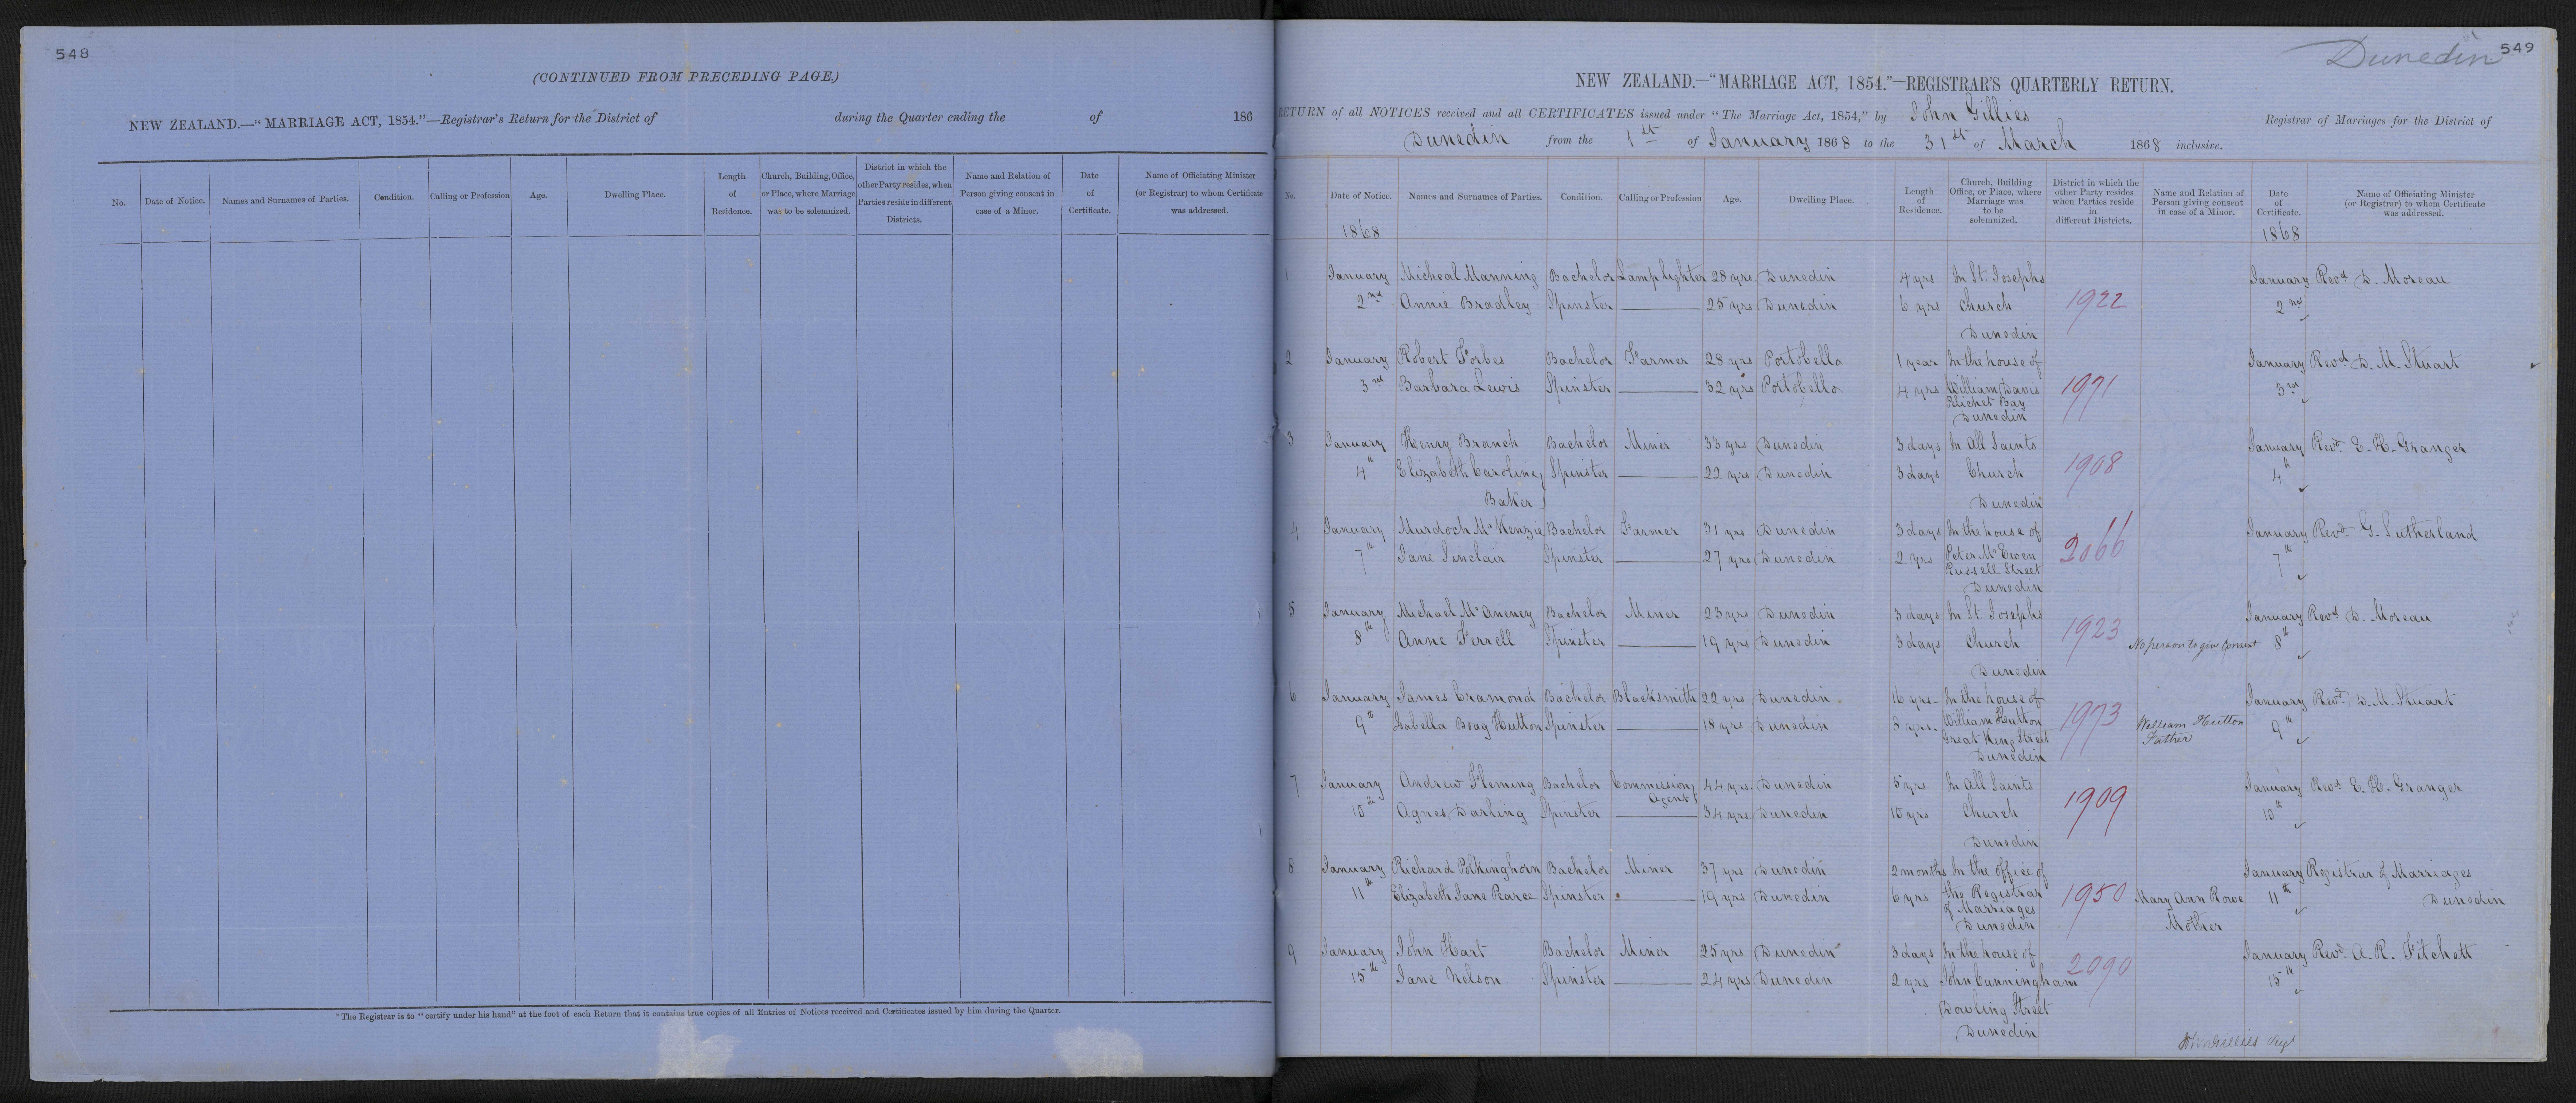 548
(CONTINUED FROM PRECEDING PAGE.)
NEW ZEALAND.—"MARRIAGE ACT, 1854."—Registrar's Return for the District of during the Quarter ending the of 186
No. Date of Notice. Names and Surnames of Parties. Condition. Calling or Profession Age. Dwelling Place. Length of Residence. Church, Building, Office, or Place, where Marriage was to be solemnized. District in which the other Party resides, when Parties reside in different Districts. Name and Relation of Person giving consent in case of a Minor. Date of Certificate. Name of Officiating Minister (or Registrar) to whom Certificate was addressed.
* The Registrar is to "certify under his hand" at the foot of each Return that it contains true copies of all Entries of Notices received and Certificates issued by him during the Quarter.
Dunedin 549
NEW ZEALAND.—"MARRIAGE ACT, 1854."—REGISTRAR'S QUARTERLY RETURN.
RETURN of all NOTICES received and all CERTIFICATES issued under "The Marriage Act, 1854," by John Gillies Registrar of Marriages for the District of
Dunedin from the 1st of January 1868 to the 31st of March 1868 inclusive.
No. Date of Notice. Names and Surnames of Parties. Condition. Calling or Profession Age. Dwelling Place. Length of Residence. Church, Building Office, or Place, where Marriage was to be solemnized. District in which the other Party resides when Parties reside in different Districts. Name and Relation of Person giving consent in case of a Minor. Date of Certificate. Name of Officiating Minister (or Registrar) to whom Certificate was addressed.
1868 1868
1 January Micheal Manning Bachelor Lamplighter 28 yrs Dunedin 4 yrs In St. Josephs January Revd D. Moreau
2nd Annie Bradley Spinster 25 yrs Dunedin 6 yrs Church 1922 2nd
Dunedin
2 January Robert Forbes Bachelor Farmer 28 yrs Portobello 1 year In the house of January Revd D. M. Stuart
3rd Barbara Lewis Spinster 32 yrs Portobello 4 yrs William Davis 1971 3rd
Pelichet Bay
Dunedin
3 January Henry Branch Bachelor Miner 33 yrs Dunedin 3 days In All Saints January Revd E. H. Granger
4th Elizabeth Caroline Spinster 22 yrs Dunedin 3 days Church 1908 4th
Baker Dunedin
4 January Murdoch McKenzie Bachelor Farmer 31 yrs Dunedin 3 days In the house of January Revd G. Sutherland
7th Jane Sinclair Spinster 27 yrs Dunedin 2 yrs Peter McEwen 2066 7th
Russell Street
Dunedin
5 January Michael McAneney Bachelor Miner 23 yrs Dunedin 3 days In St. Josephs January Revd D. Moreau
8th Anne Ferrell Spinster 19 yrs Dunedin 3 days Church 1923 No person to give Consent 8th
Dunedin
6 January James Cramond Bachelor Blacksmith 22 yrs Dunedin 16 yrs In the house of January Revd D. M. Stuart
9th Isabella Boag Hutton Spinster 18 yrs Dunedin 8 yrs. William Hutton 1973 William Hutton 9th
Great King Street Father
Dunedin
7 January Andrew Fleming Bachelor Commission Agent 44 yrs Dunedin 5 yrs In All Saints January Revd E. H. Granger
10th Agnes Darling Spinster 34 yrs Dunedin 10 yrs Church 1909 10th
Dunedin
8 January Richard Polkinghorn Bachelor Miner 37 yrs Dunedin 2 months In the office of January Registrar of Marriages
11th Elizabeth Jane Pearce Spinster 19 yrs Dunedin 6 yrs the Registrar 1950 Mary Ann Rowe 11th Dunedin
of Marriages Mother
Dunedin
9 January John Hart Bachelor Miner 25 yrs Dunedin 3 days In the house of January Revd A. R. Fitchett
15th Jane Nelson Spinster 24 yrs Dunedin 2 yrs John Cunningham 2090 15th
Dowling Street
Dunedin
John Gillies Regr